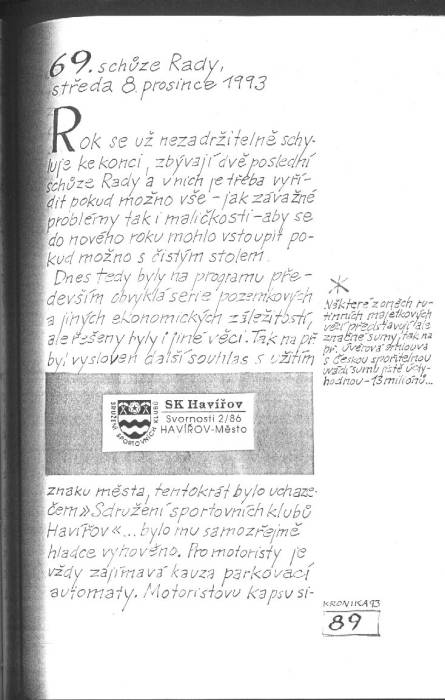 69. schůze Rady,
středa 8. prosince 1993
Rok se už nezadržitelně schy-
luje ke konci, zbývají dvě poslední
schůze Rady a v nich je třeba vyří-
dit pokud možno vše - jak závažné
problémy tak i maličkosti - aby se
do nového roku mohlo vstoupit po-
kud možno s čistým stolem.
Dnes tedy byly na programu pře-
devším obvyklá série pozemkových
a jiných ekonomických záležitostí,
ale řešeny byly i jiné věci. Tak na př.
byl vysloven další souhlas s užitím
SDRUŽENÍ SPORTOVNÍCH KLUBŮ
SK Havířov
Svornosti 2/86
HAVÍŘOV-Město
znaku města, tentokrát bylo uchaze-
čem »Sdružení sportovních klubů
Havířov«... bylo mu samozřejmě
hladce vyhověno. Pro motoristy je
vždy zajímavá kauza parkovací
automaty. Motoristovu kapsu si-
*
Některé z oněch ru-
tinních majetkových
věcí představují ale
značné sumy, tak na
př. úvěrová smlouva
s Českou spořitelnou
uvádí sumu jistě úcty-
hodnou - 13 milionů...
KRONIKA 93
89